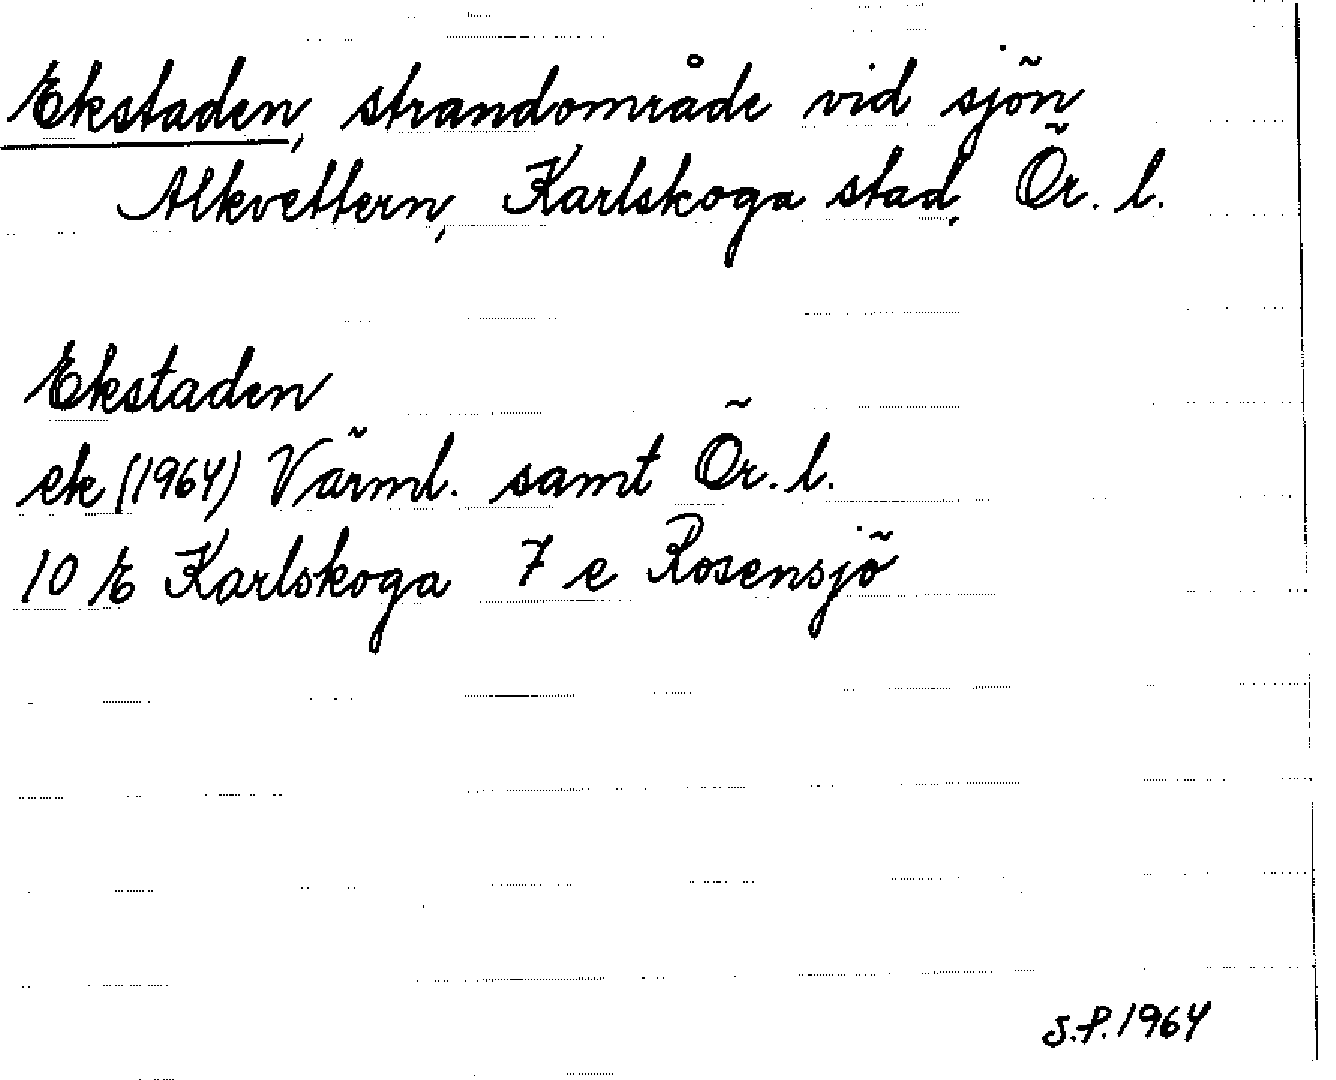 Ekstaden, strandområde vid sjön
Alkvettern, Karlskoga stad, Ör. l.
Ekstaden
ek (1964) Värml. samt Ör. l.
10 E Karlskoga 7 e Rosensjö
S.P. 1964